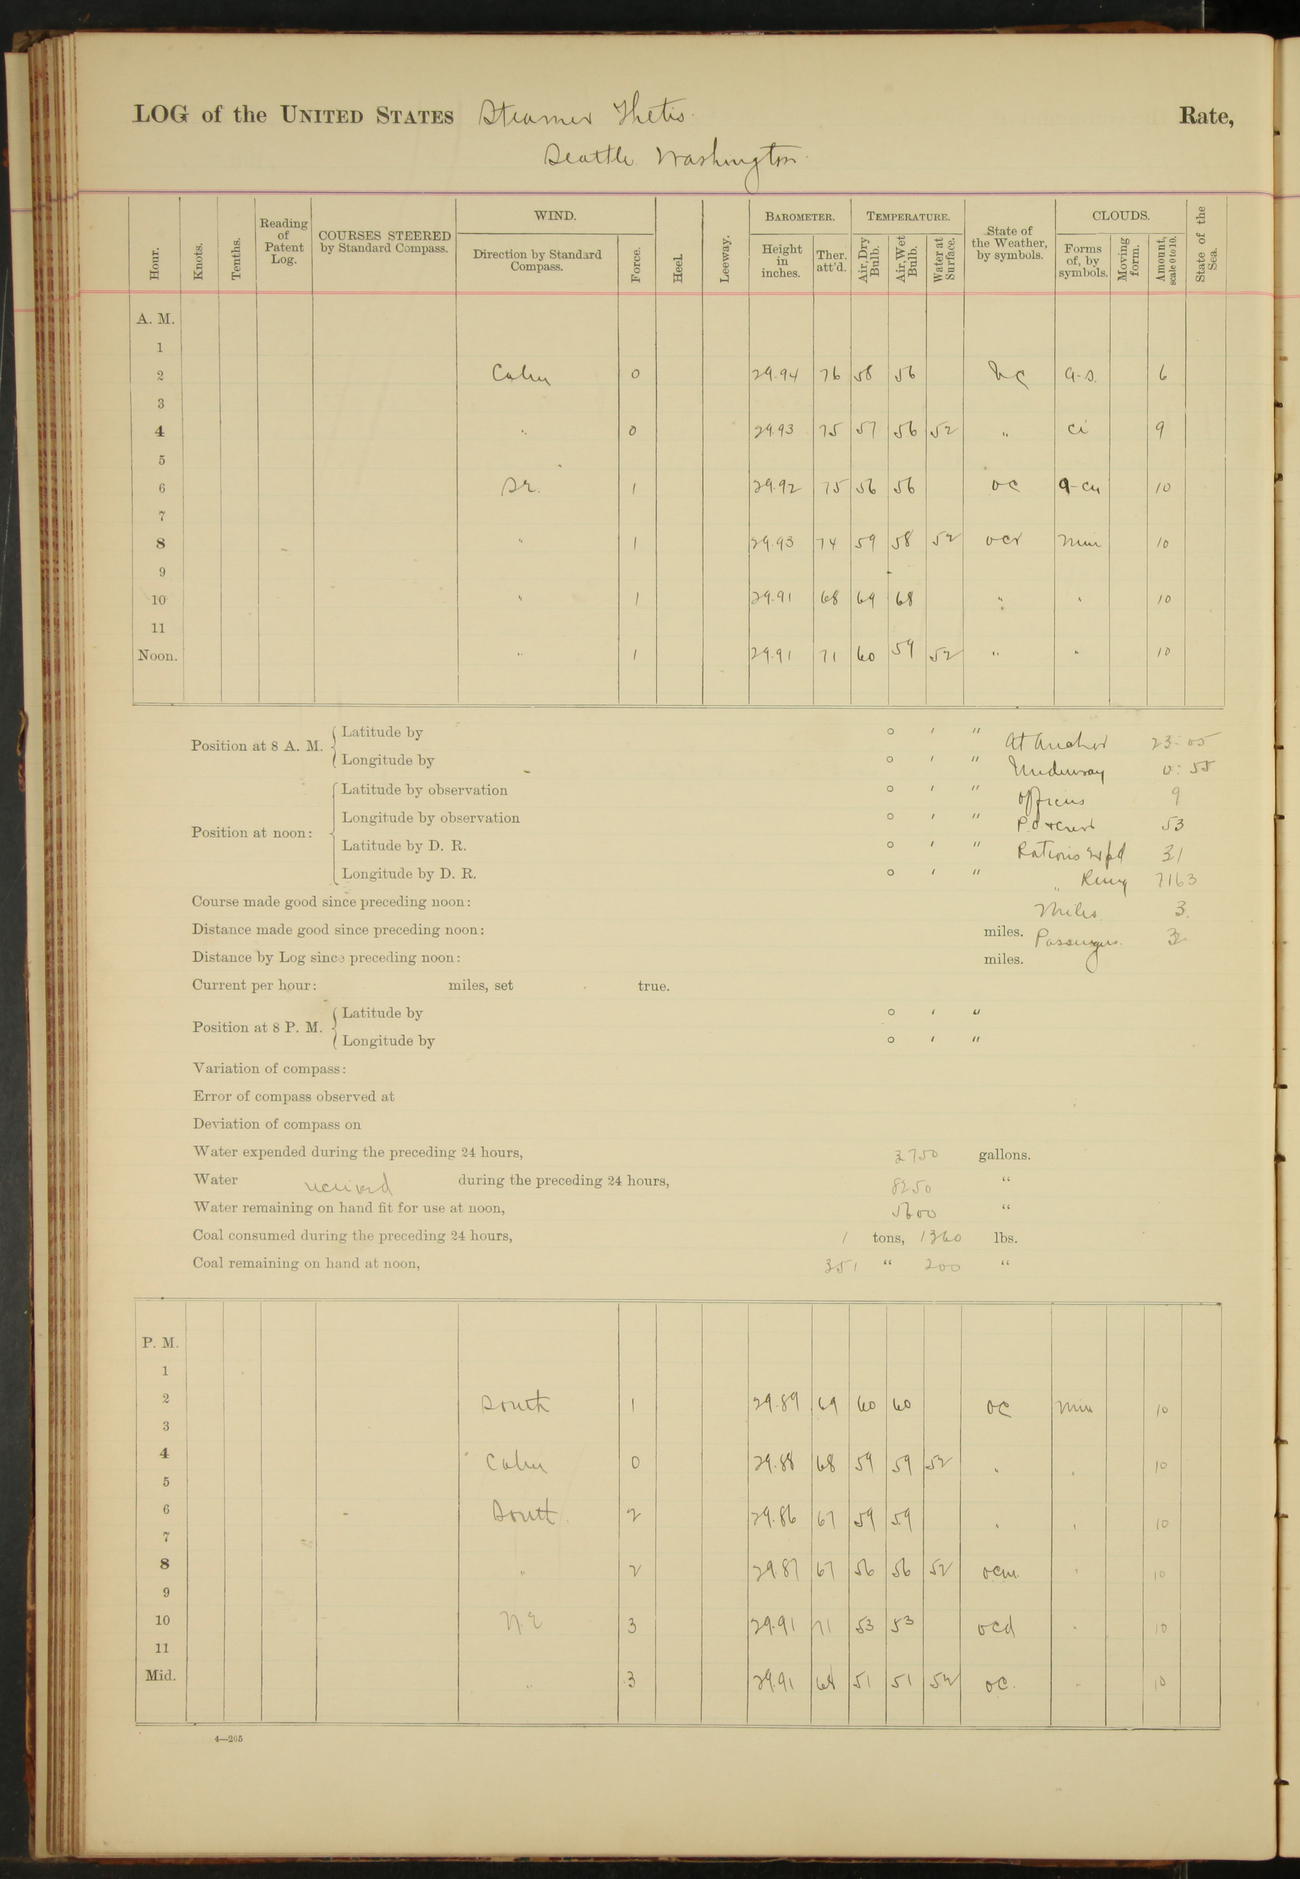 LOG of the UNITED STATES Steamer Thetis. Rate,
Seattle Washington.
Hour. Knots. Tenths. Reading of Patent Log. COURSES STEERED by Standard Compass. WIND. Direction by Standard Compass. Force. Heel. Leeway. BAROMETER. Height in inches. Ther. att'd. TEMPERATURE. Air, Dry Bulb. Air, Wet Bulb. Water at Surface. State of the Weather, by symbols. CLOUDS. Forms of, by symbols. Moving form. Amount, scale 0 to 10. State of the Sea.
A. M.
1
2 Calm 0 29.94 76 58 56 bc a-s. 6
3
4 " 0 29.93 75 57 56 52 " ci 9
5
6 Sr. 1 29.92 75 56 56 oc a-cu 10
7
8 " 1 29.93 74 59 58 52 ocr nim 10
9
10 " 1 29.91 68 69 68 " " 10
11
Noon. " 1 29.91 71 60 59 52 " " 10
Position at 8 A. M. Latitude by ° ′ ″ At Anchor 23:05
Longitude by ° ′ ″ Underway 0:55
Position at noon: Latitude by observation ° ′ ″ Officers 9
Longitude by observation ° ′ ″ P.O + Crew 53
Latitude by D. R. ° ′ ″ Rations Expd 31
Longitude by D. R. ° ′ ″ " Remg 7163
Course made good since preceding noon: Miles 3.
Distance made good since preceding noon: miles. Passengers.
Distance by Log since preceding noon: miles.
Current per hour: miles, set true.
Position at 8 P. M. Latitude by ° ′ ″
Longitude by ° ′ ″
Variation of compass:
Error of compass observed at
Deviation of compass on
Water expended during the preceding 24 hours, 2750 gallons.
Water received during the preceding 24 hours, 8250 "
Water remaining on hand fit for use at noon, 5600 "
Coal consumed during the preceding 24 hours, 1 tons, 1360 lbs.
Coal remaining on hand at noon, 351 " 200 "
P. M.
1
2 South 1 29.89 69 60 60 oc nim 10
3
4 Calm 0 29.88 68 59 59 52 " " 10
5
6 South. 2 29.86 67 59 59 " " 10
7
8 " 2 29.87 67 56 56 52 ocm " 10
9
10 N.E 3 29.91 71 53 53 ocd " 10
11
Mid. " 3 29.91 68 51 51 52 oc. " 10
4—205